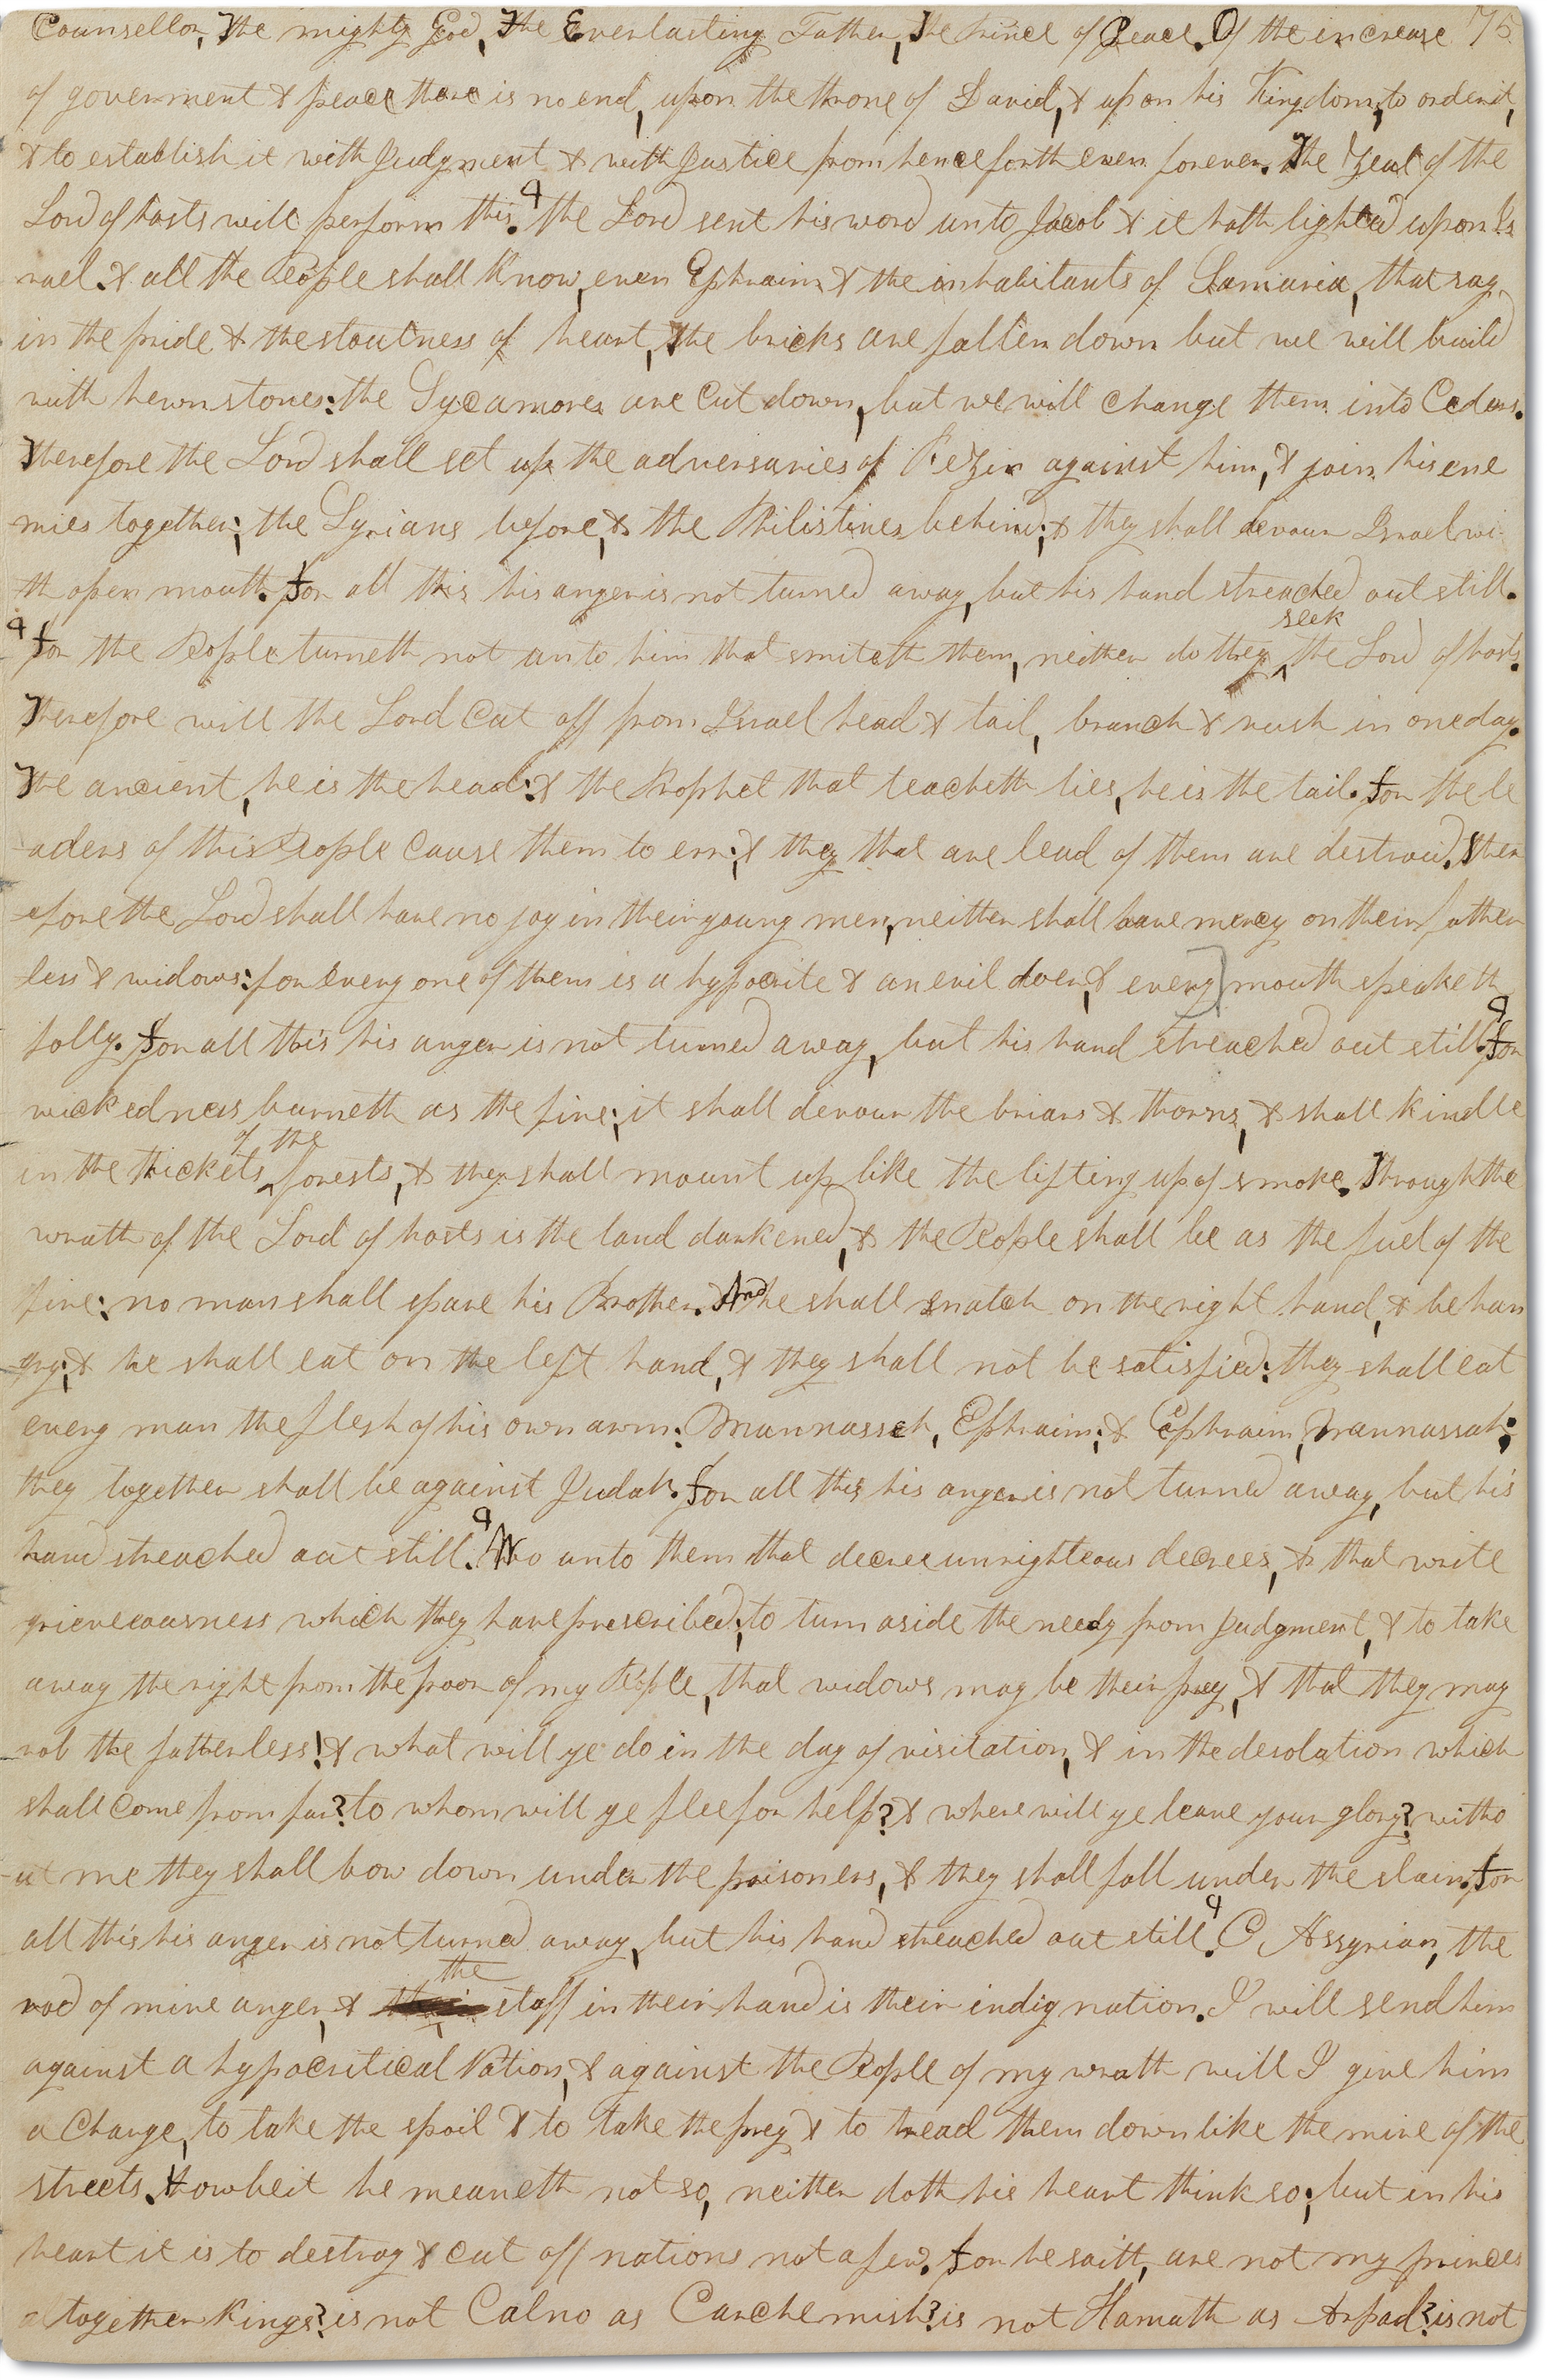 Counsellor, The mighty God, The Everlasting Father, The Prince of Peace. Of the increase 75
of goverment & peace there is no end, upon the throne of David, & upon his Kingdom, to order it,
& to establish it with Judgment & with Justice from henceforth even forever. The Zeal of the
Lord of hosts will perform this. ¶ the Lord sent his word unto Jacob & it hath lighted upon Is
rael. & all the People shall Know, even Ephraim & the inhabitants of Samaria, that say
in the pride & the stoutness of heart, The bricks are fallen down but we will build
with hewn stones: the Sycamores are Cut down, but we will Change them into Cedars.
Therefore the Lord shall set up the adversaries of Rezin against him, & join his ene
mies together; the Syrians before, & the Philistines behind; & they shall devour Israel wi
th open mouth. For all this his anger is not turned away, but his hand streached out still.
¶ For the People turneth not unto him that smiteth them, neither do they ^seek the Lord of hosts.
Therefore will the Lord Cut off from Israel head & tail, branch & rush in one day.
The ancient, he is the head; & the Prophet that teacheth lies, he is the tail. For the le
aders of this People Cause them to err; & they that are lead of them are destroid. Ther
efore the Lord shall have no joy in their young men, neither shall have mercy on their father
less & widows: for every one of them is a hypocrite & an evil doer, & every] mouth speaketh
folly. For all this his anger is not turned away, but his hand streached out still. ¶ For
wickedness burneth as the fire; it shall devour the briars & thorns, & shall Kindle
in the thickets ^of the forests, & they shall mount up like the lifting up of smoke. Through the
wrath of the Lord of hosts is the land darkened, & the People shall be as the fuel of the
fire: no man shall spare his Brother. And he shall snatch on the right hand, & be hun
gry; & he shall eat on the left hand, & they shall not be satisfied: they shall eat
every man the flesh of his own arm: Mannasseh, Ephraim; & Ephraim, Mannassah;
they together shall be against Judah. For all this his anger is not turned away, but his
hand streached out still. ¶ Wo unto them that decree unrighteous decrees, & that write
grieveousness which they have prescribed; to turn aside the needy from Judgment, & to take
away the right from the poor of my People, that widows may be their prey, & that they may
rob the fatherless! & what will ye do in the day of visitation, & in the desolation which
shall Come from far? to whom will ye flee for help? & where will ye leave your glory? witho
ut me they shall bow down under the prisoners, & they shall fall under the slain. For
all this his anger is not turned away, but his hand streached out still. ¶ O Assyrian, the
rod of mine anger, & the staff in their hand is their indignation. I will send him
against a hypocritical Nation, & against the People of my wrath will I give him
a Charge, to take the spoil & to take the prey & to tread them down like the mire of the
streets. Howbeit he meaneth not so, neither doth his heart think so; but in his
heart it is to destroy & Cut off nations not a few. For he saith, are not my princes
altogether Kings? is not Calno as Carchemish? is not Hamath as Arpad? is not